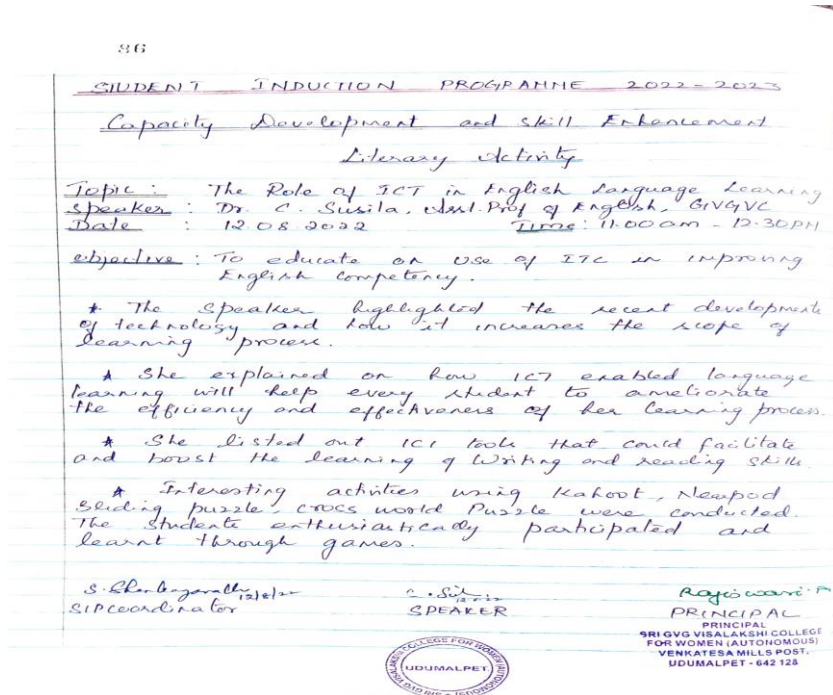 86
STUDENT INDUCTION PROGRAMME 2022-2023
Capacity Development and Skill Enhancement
Literary Activity
Topic : The Role of ICT in English Language Learning
Speaker : Dr. C. Susila, Asst. Prof of English, GVGVC
Date : 12.08.2022 Time: 11.00am - 12.30PM
Objective : To educate on use of ITC in improving
English competency.
* The speaker highlighted the recent developments
of technology and how it increases the scope of
learning process.
* She explained on how ICT enabled language
learning will help every student to ameliorate
the efficiency and effectiveness of her learning process.
* She listed out ICT tools that could facilitate
and boost the learning of Writing and reading skills.
* Interesting activities using Kahoot, Nearpod
Sliding puzzle, cross world Puzzle were conducted.
The students enthusiastically participated and
learnt through games.
12/8/22
SIPcoordinator SPEAKER PRINCIPAL
PRINCIPAL
SRI GVG VISALAKSHI COLLEGE
FOR WOMEN (AUTONOMOUS)
VENKATESA MILLS POST.
UDUMALPET - 642 128
UDUMALPET.